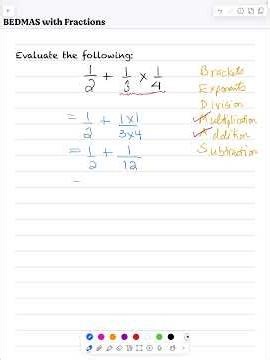 BEDMAS with Fractions
Evaluate the following:
1/2 + 1/3 × 1/4
= 1/2 + 1×1/3×4
= 1/2 + 1/12
=
Brackets
Exponents
Division
Multiplication
Addition
Subtraction